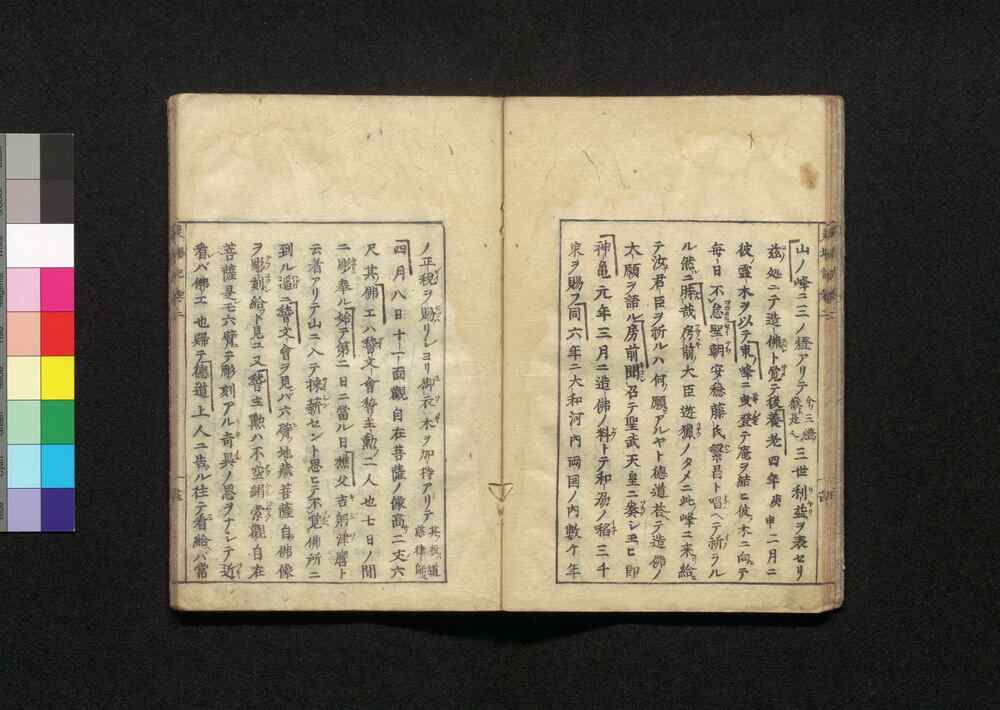 山ノ峰ニ三ノ燈アリテ今三燈嶽是也三世利益ヲ表セリ
茲処ニテ造佛ト覚テ後養老四年庚申二月ニ
彼ノ霊木ヲ以テ東ノ峰ニ曳登テ庵ヲ結ヒ彼木ニ向テ
毎日不怠聖朝安穏藤氏繁昌ト唱ヘテ祈ラル
ル然ニ時哉房前大臣遊猟ノタメニ此峰ニ来給
テ汝君臣ヲ祈ルハ何ノ願アルヤト德道答テ造佛ノ
太願ヲ語ル房前聞召テ聖武天皇ニ奏シ玉ヒ即
神亀元年三月ニ造佛ノ料トテ和劦ノ稲三千
束ヲ賜フ同六年ニ大和河内両国ノ内數ケ年
ノ正税ヲ賜リシヨリ御衣木ヲ加持アリテ其後道慈律師
四月八日十一面觀自在菩薩ノ像高二丈六
尺其佛工ハ稽文會稽主勲二人也七日ノ間
ニ彫奉ル始テ第二日ニ當ル日樵父吉躬津麿ト
云者アリテ山ニ入テ採薪セント思ヒテ不覚佛所ニ
到ル遥ニ稽文會ヲ見バ六臂地蔵菩薩自佛像
ヲ彫刻給ト見ユ又稽主勲ハ不空羂索觀自在
菩薩是モ六臂テ彫刻アル奇異ノ思ヲナシテ近
看バ佛工也歸テ德道上人ニ告ル往テ看給バ當